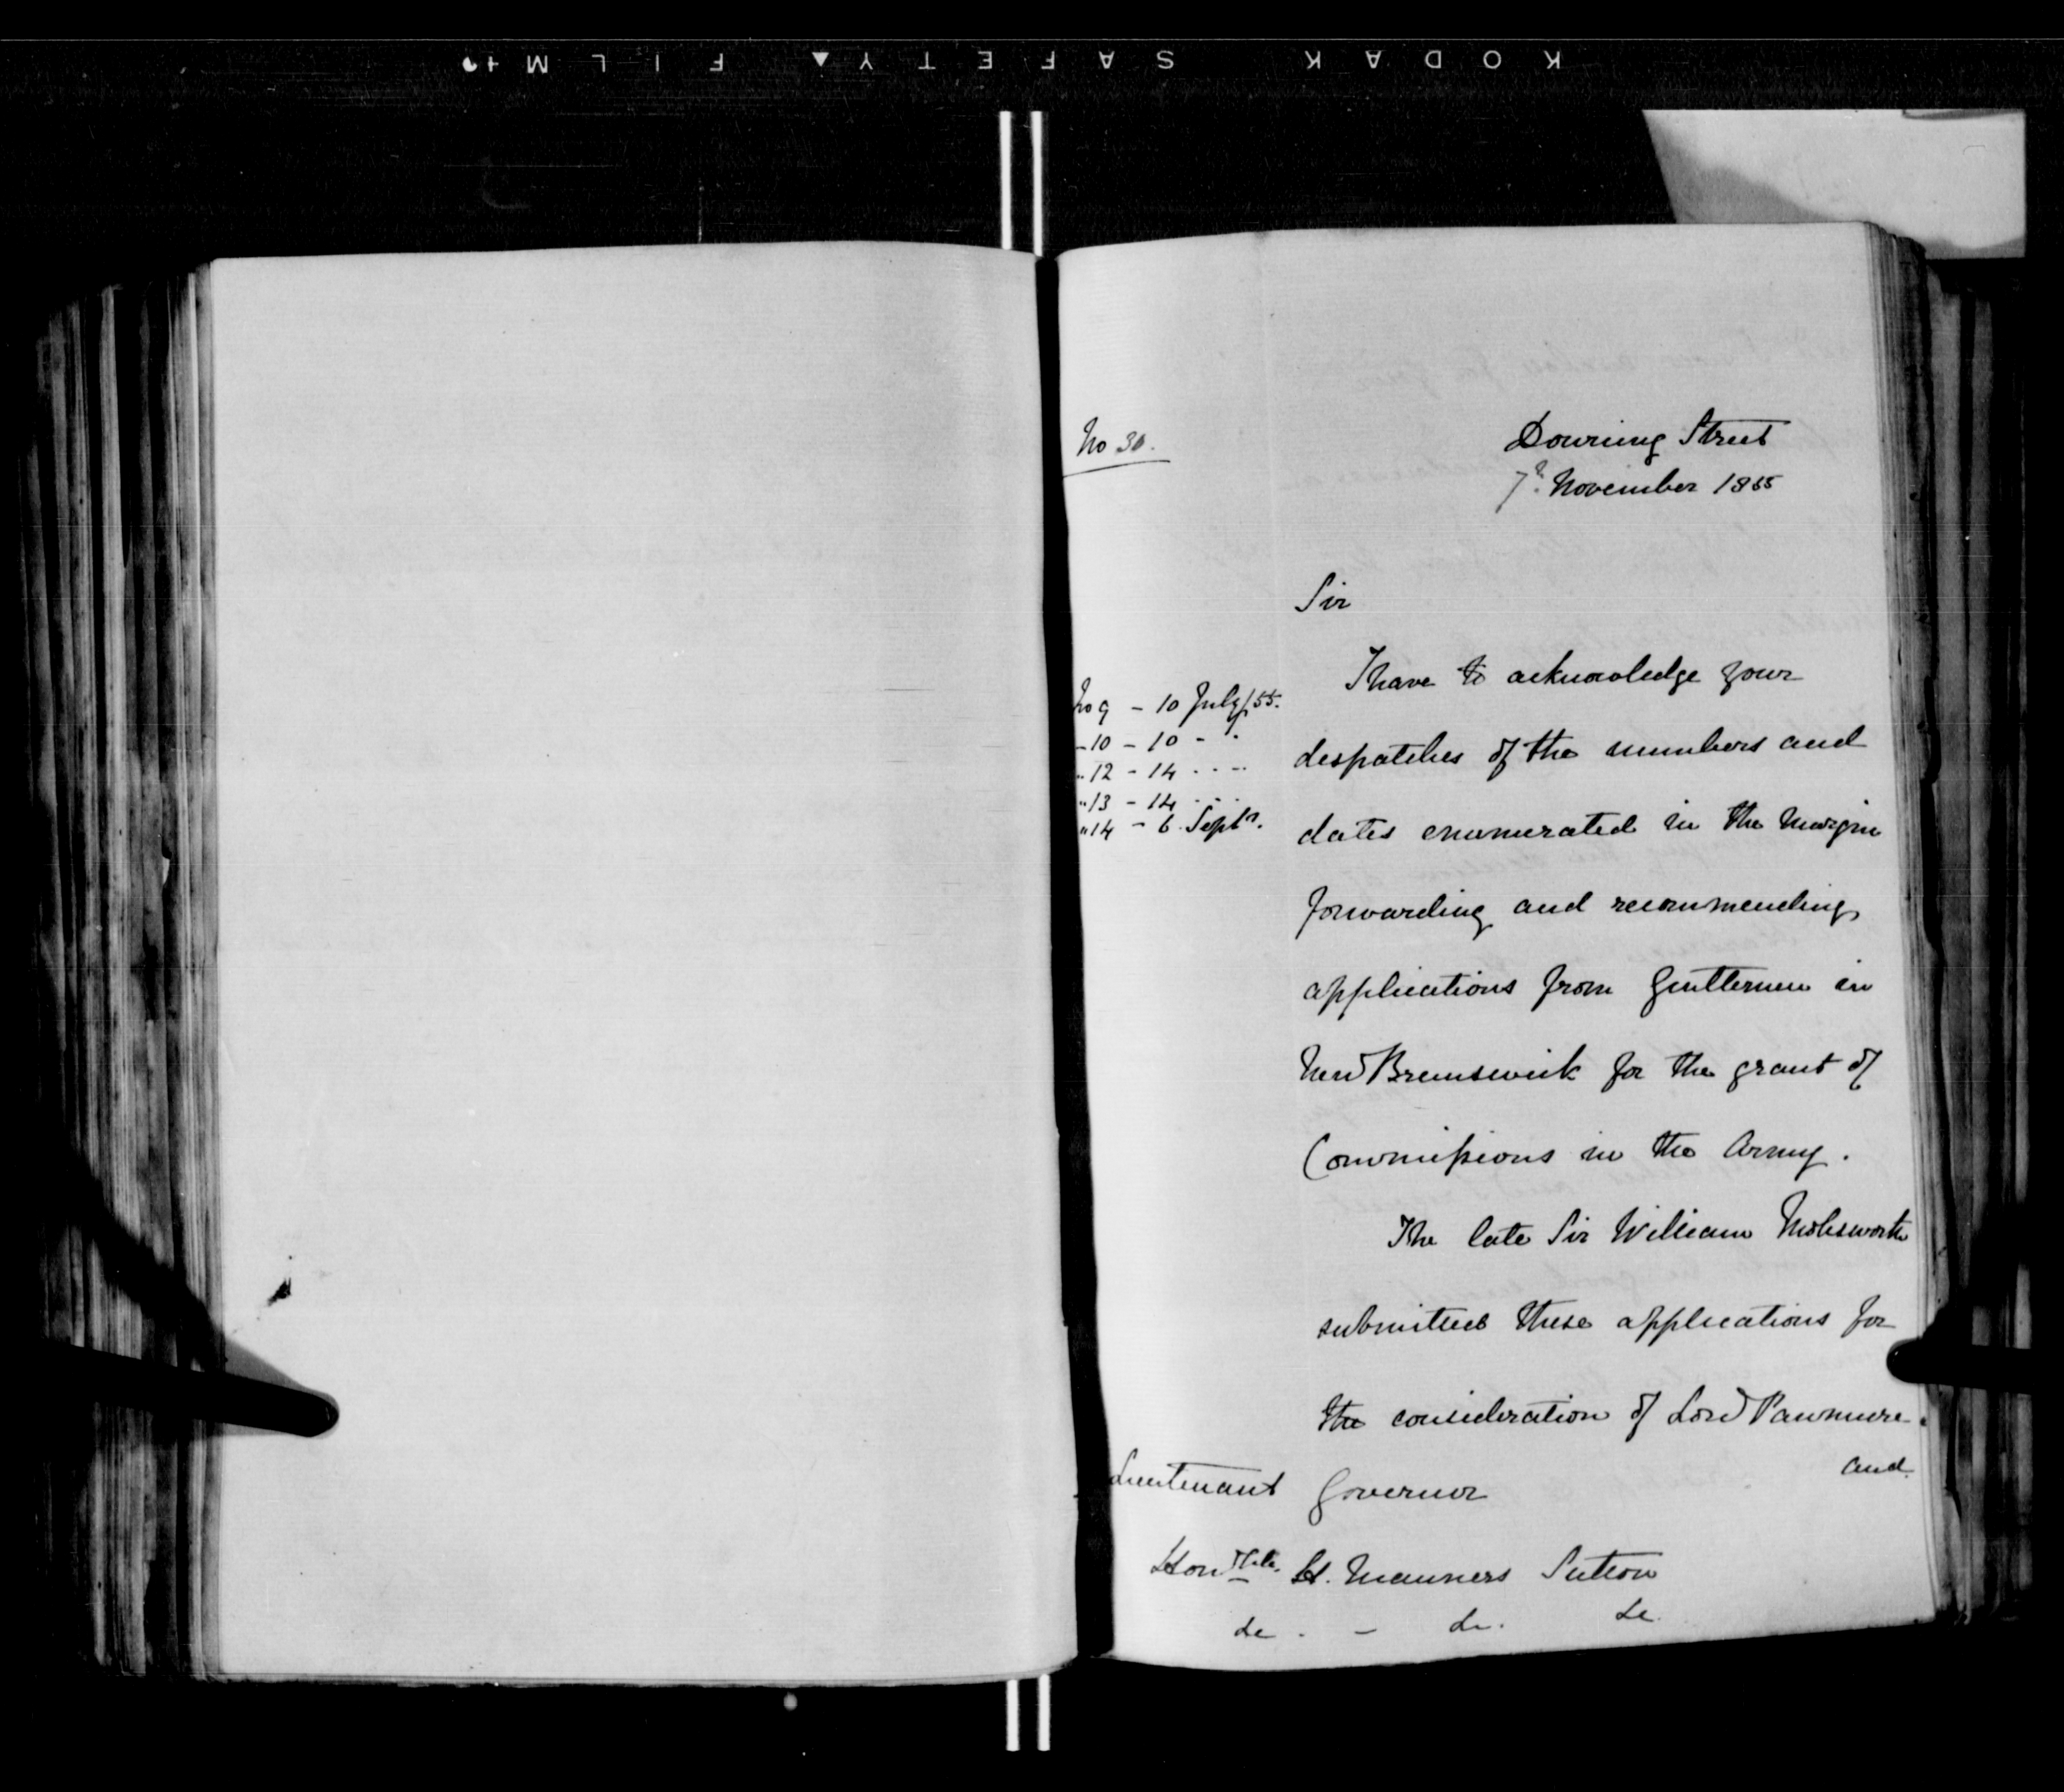 KODAK SAFETY FILM
No 30.
Downing Street
7th November 1855
Sir
I have to acknowledge your
No 9 - 10 July/55.
- 10 - 10 - "
despatches of the numbers and
" 12 - 14 - - -
" 13 - 14 - - -
" 14 - 6 Septr.
dates enumerated in the margin
forwarding and recommending
applications from Gentlemen in
New Brunswick for the grant of
Commissions in the Army.
The late Sir William Molesworth
submitted these applications for
the consideration of Lord Panmure.
and
Lieutenant Governor
Honble. H. Manners Sutton
&c. - &c. &c.